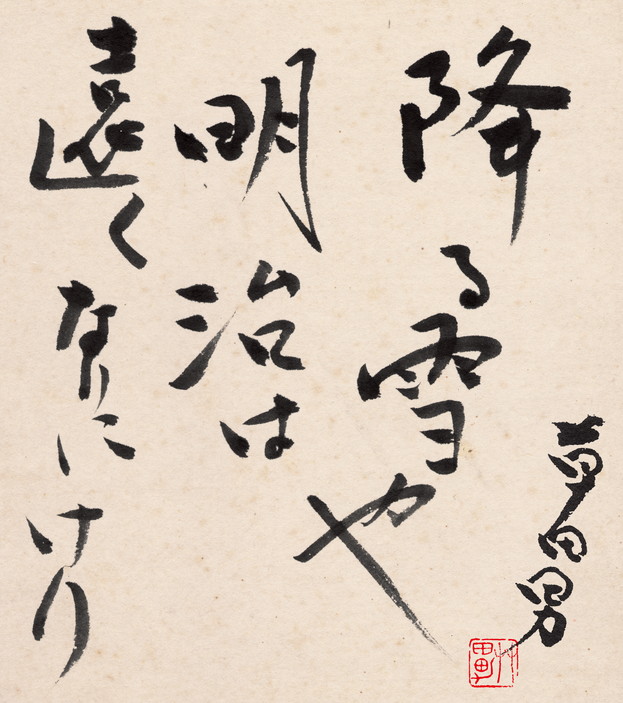 降る雪や
明治は
遠くなりにけり
草田男